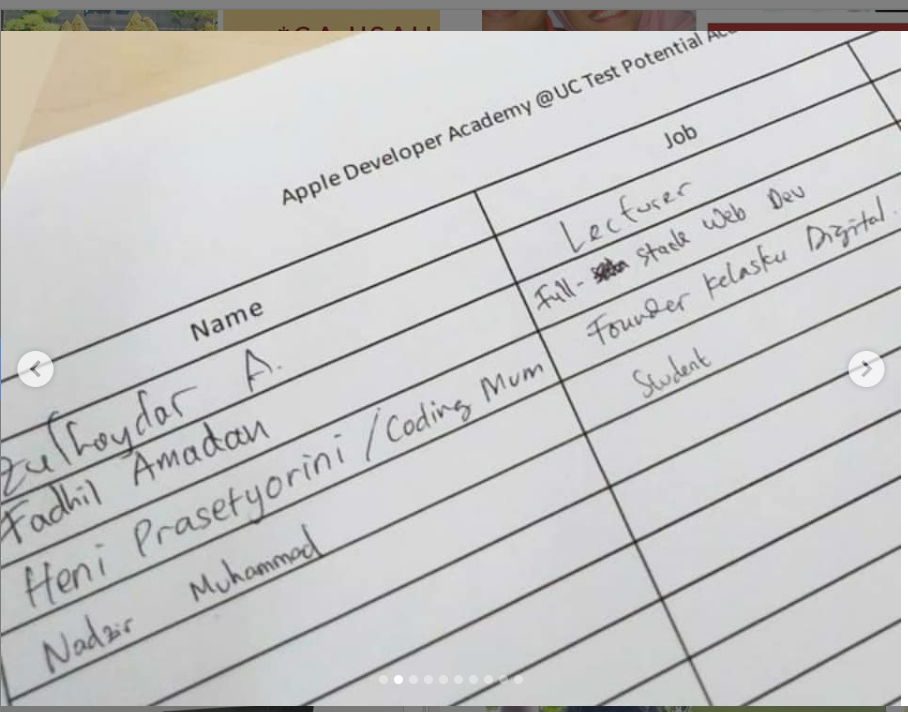 *GA USAH
Apple Developer Academy @UC Test Potential
Name Job
Zulhaydar A. Lecturer
Fadhil Amadan Full- stack Web Dev
Heni Prasetyorini / Coding Mum Founder Kelasku Digital.
Nadzir Muhammad Student